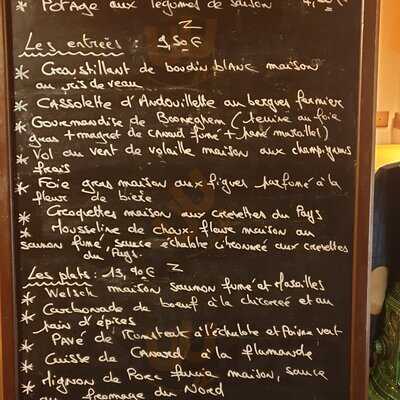 * Potage aux légumes de saison 4,50€
Les entrées : 9,50€
* Croustillant de boudin blanc maison
au ris de veau
* CASSOlette d'Andouillette au bergues fermier
* Gourmandise de Booneghem (terrine au foie
gras + magret de canard fumé + pané maroilles)
* Vol au vent de volaille maison aux champignons
frais
* Foie gras maison aux figues parfumé à la
fleur de bière
* Croquettes maison aux crevettes du Pays
* Mousseline de choux-fleurs maison au
saumon fumé, sauce échalote citronnée aux crevettes
du Pays.
Les plats : 13,90€
* Welsch maison saumon fumé et Maroilles
* Carbonade de boeuf à la chicorée et au
pain d'épices
* PAVÉ de Rumsteak à l'échalote et Poivre vert
* Cuisse de Canard à la flamande
* Mignon de Porc fumé maison, sauce
au fromage du Nord